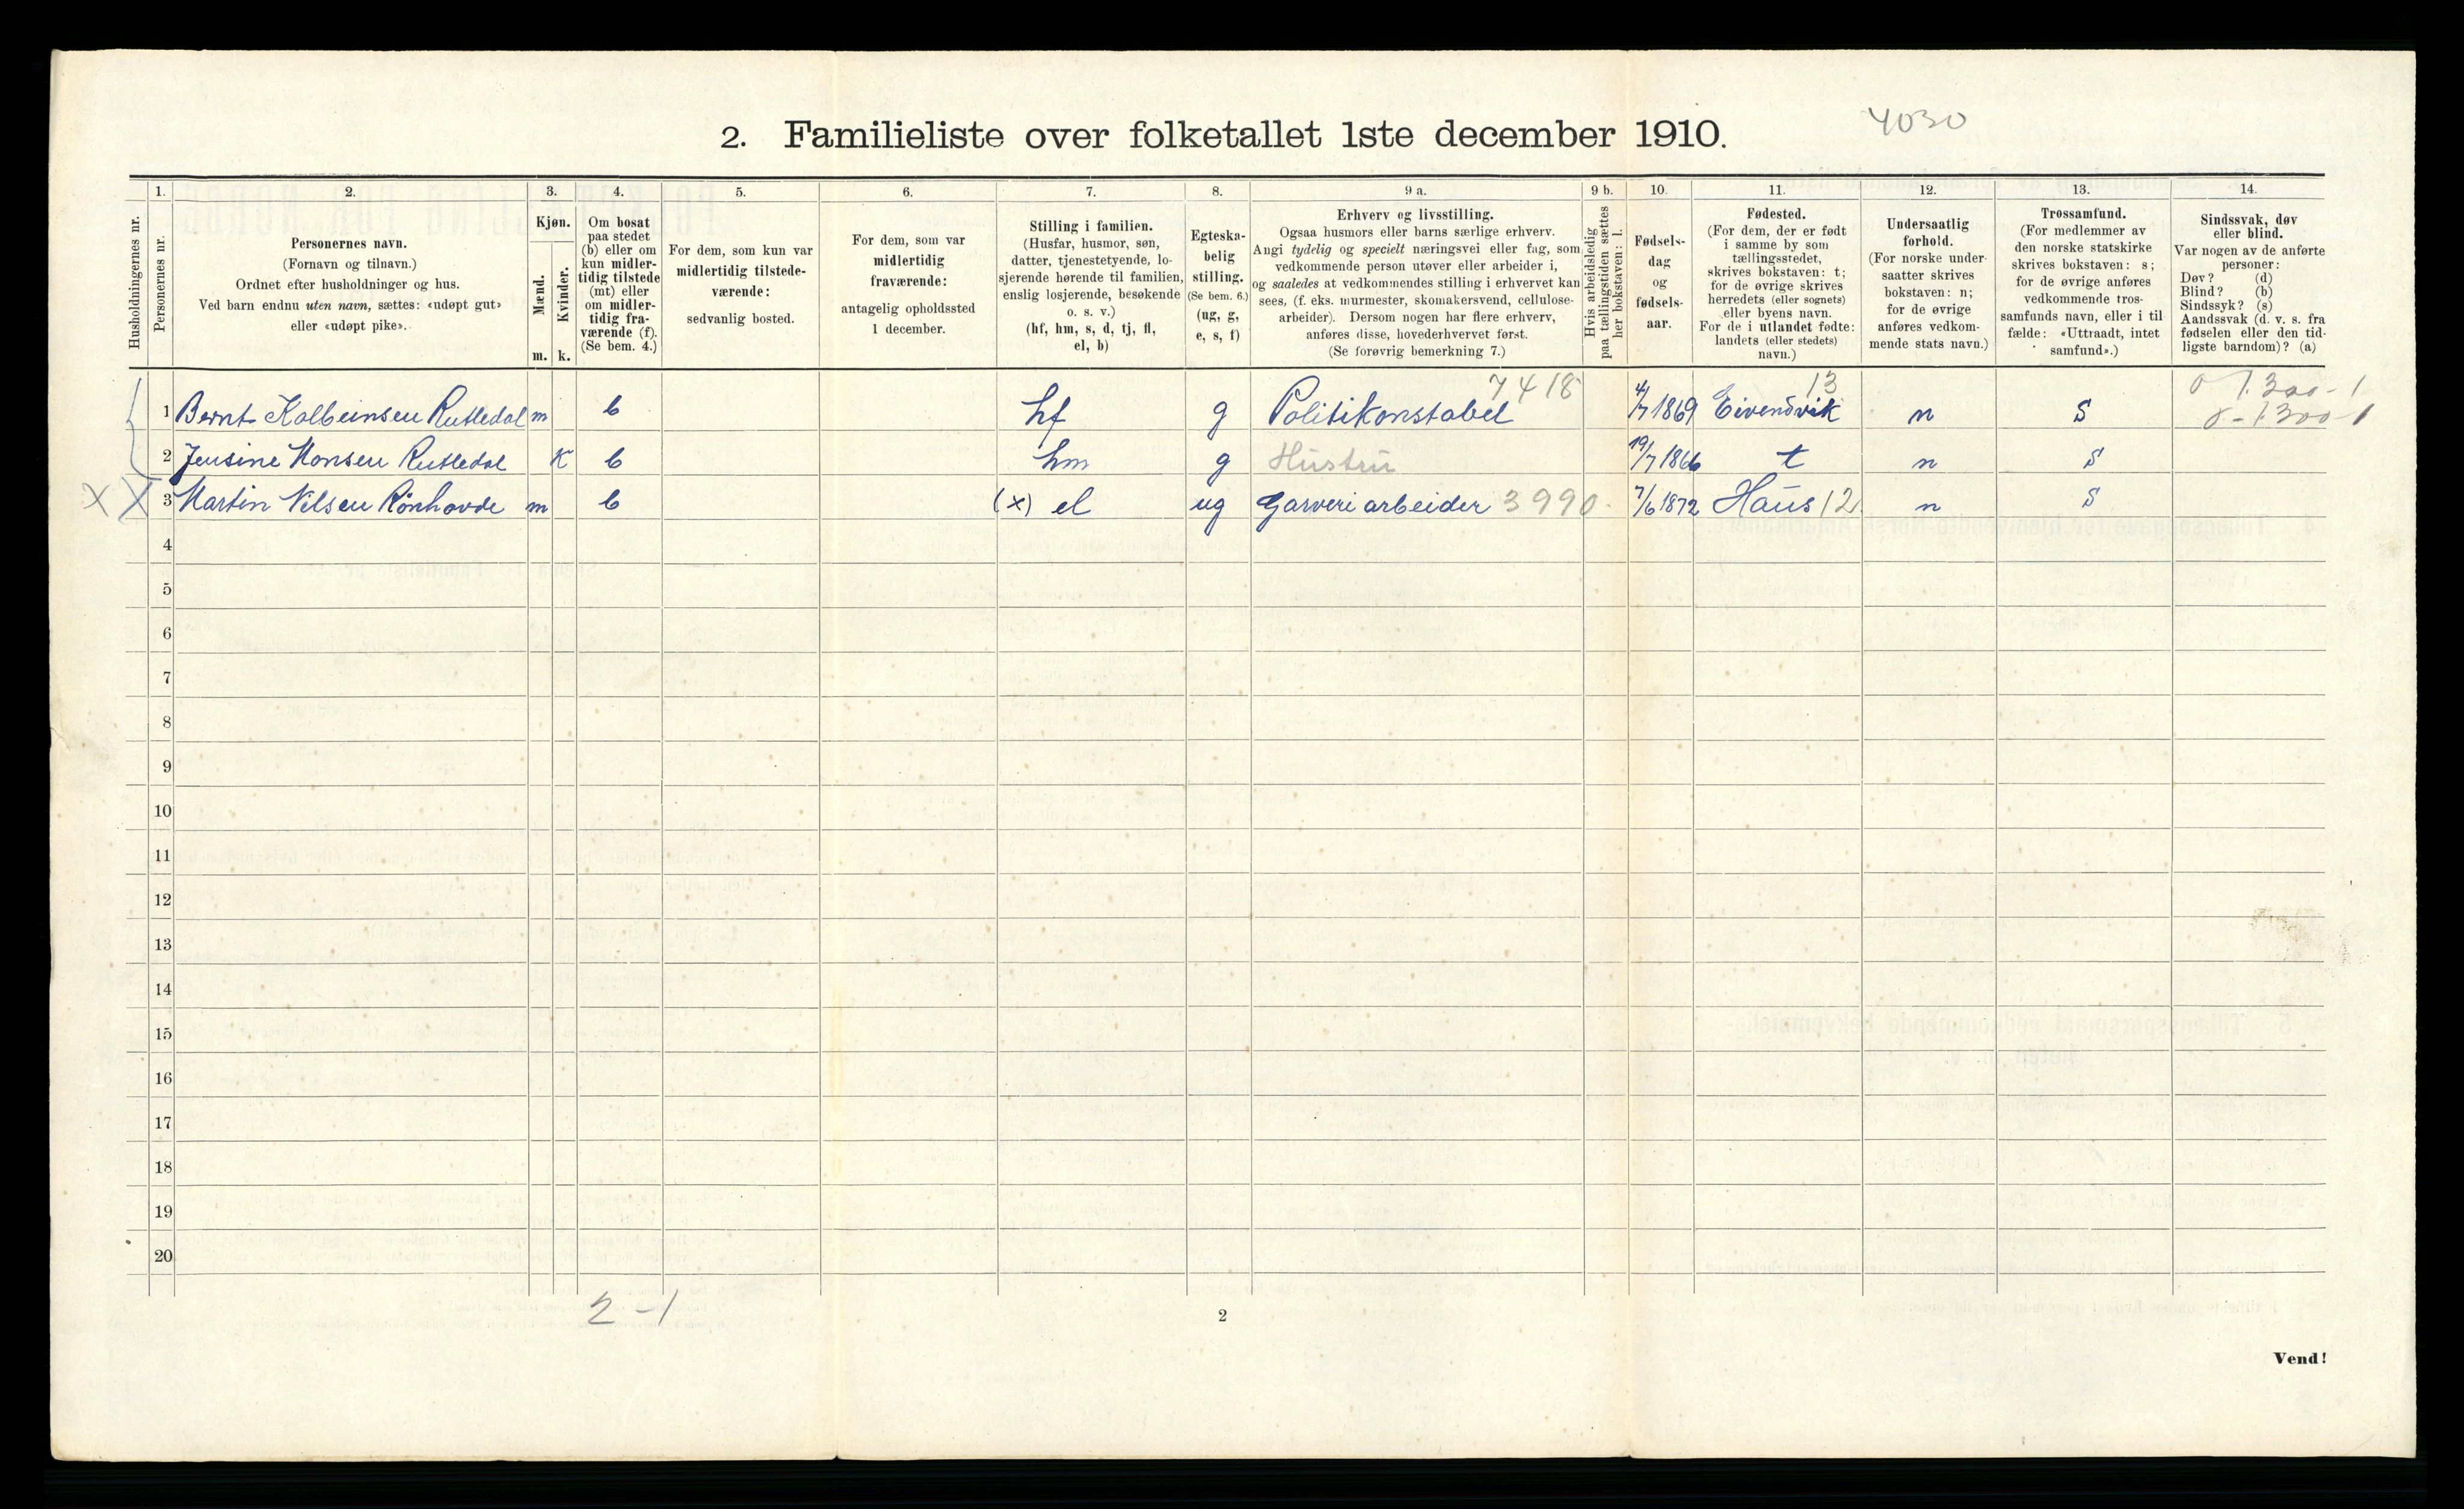 2. Familieliste over folketallet 1ste december 1910.
4030
1. 2. 3. 4. 5. 6. 7. 8. 9 a. 9 b. 10. 11. 12. 13. 14.
Husholdningernes nr.
Personernes nr.
Personernes navn.
(Fornavn og tilnavn.)
Ordnet efter husholdninger og hus.
Ved barn endnu uten navn, sættes: «udøpt gut»
eller «udøpt pike».
Kjøn.
Mænd.
m.
Kvinder.
k.
Om bosat
paa stedet
(b) eller om
kun midler-
tidig tilstede
(mt) eller
om midler-
tidig fra-
værende (f).
(Se bem. 4.)
For dem, som kun var
midlertidig tilstede-
værende:
sedvanlig bosted.
For dem, som var
midlertidig
fraværende:
antagelig opholdssted
1 december.
Stilling i familien.
(Husfar, husmor, søn,
datter, tjenestetyende, lo-
sjerende hørende til familien,
enslig losjerende, besøkende
o. s. v.)
(hf, hm, s, d, tj, fl,
el, b)
Egteska-
belig
stilling.
(Se bem. 6.)
(ug, g,
e, s, f)
Erhverv og livsstilling.
Ogsaa husmors eller barns særlige erhverv.
Angi tydelig og specielt næringsvei eller fag, som
vedkommende person utøver eller arbeider i,
og saaledes at vedkommendes stilling i erhvervet kan
sees, (f. eks. murmester, skomakersvend, cellulose-
arbeider). Dersom nogen har flere erhverv,
anføres disse, hovederhvervet først.
(Se forøvrig bemerkning 7.)
Hvis arbeidsledig
paa tællingstiden sættes
her bokstaven: l.
Fødsels-
dag
og
fødsels-
aar.
Fødested.
(For dem, der er født
i samme by som
tællingsstedet,
skrives bokstaven: t;
for de øvrige skrives
herredets (eller sognets)
eller byens navn.
For de i utlandet fødte:
landets (eller stedets)
navn.)
Undersaatlig
forhold.
(For norske under-
saatter skrives
bokstaven: n;
for de øvrige
anføres vedkom-
mende stats navn.)
Trossamfund.
(For medlemmer av
den norske statskirke
skrives bokstaven: s;
for de øvrige anføres
vedkommende tros-
samfunds navn, eller i til
fælde: «Uttraadt, intet
samfund».)
Sindssvak, døv
eller blind.
Var nogen av de anførte
personer:
Døv? (d)
Blind? (b)
Sindssyk? (s)
Aandssvak (d. v. s. fra
fødselen eller den tid-
ligste barndom)? (a)
7418 13 0 1.300-1
1 Bernt Kolbeinsen Rutledal m b hf g Politikonstabel 4/7 1869 Eivendvik n S 0-1300-1
2 Jensine Monsen Rutledal K b hm g Hustru 19/7 1866 t n S
X X 3 Martin Nilsen Rönhovde m b (x) el ug Garveriarbeider 3990 7/6 1872 Haus 12 n S
4
5
6
7
8
9
10
11
12
13
14
15
16
17
18
19
20
2-1
2
Vend!